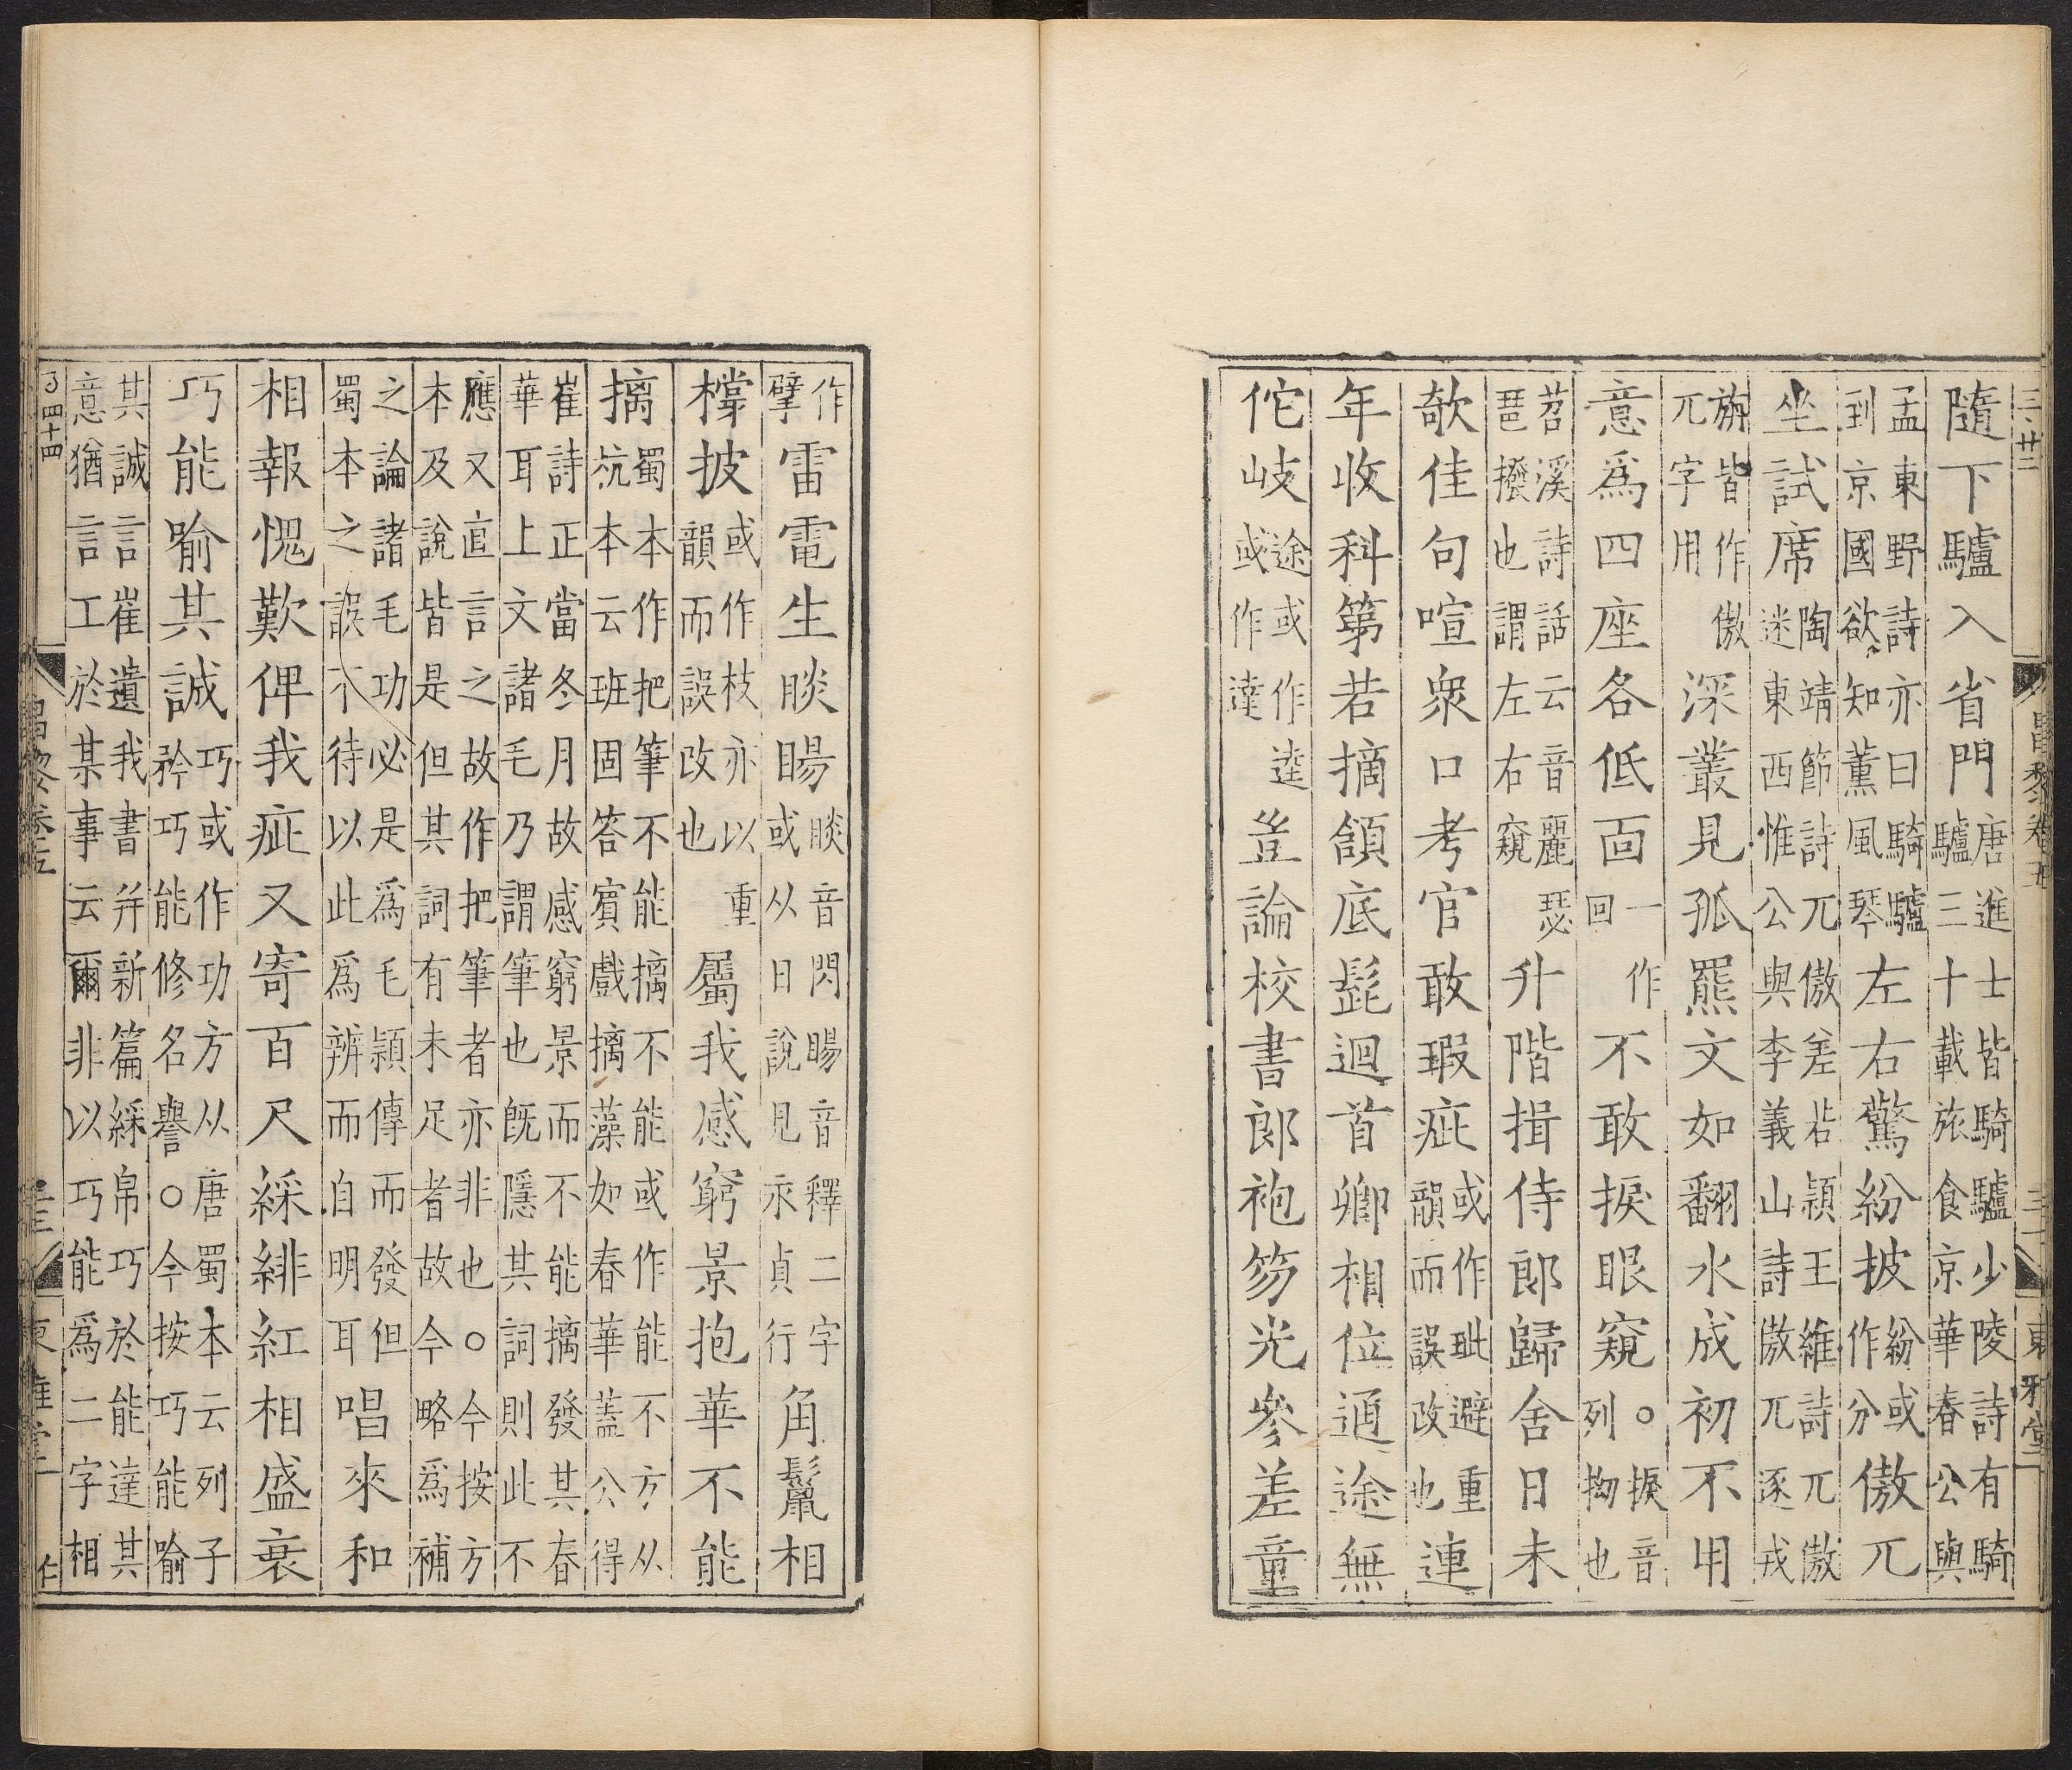 三廿二 昌黎卷五 東雅堂
隨下驢入省門唐進士皆騎驢少陵詩有騎驢三十載旅食京華春公與
孟東野詩亦曰騎驢到京國欲知薰風琴左右驚紛披紛或作分傲兀
坐試席陶靖節詩兀傲差若穎王維詩兀傲迷東西惟公與李義山詩傲兀逐戎
旃皆作傲兀字用深叢見孤羆文如翻水成初不用
意爲四座各低面一作回不敢捩眼窺○捩音列拗也
苕溪詩話云音麗瑟琶撥也謂左右窺升階揖侍郎歸舍日未
欹佳句喧衆口考官敢瑕疵或作玼避重韻而誤改也連
年收科第若摘頷底髭迴首卿相位通途無
佗岐途或作逵或作達豈論校書郎袍笏光參差童
作擘雷電生睒睗睒音閃睗音釋二字或从日說見永貞行角鬣相
橕披或作枝亦以重韻而誤改也屬我感窮景抱華不能
摛蜀本作把筆不能摛不能或作能不方从杭本云班固答賓戲摛藻如春華蓋公得
崔詩正當冬月故感窮景而不能摛發其春華耳上文諸毛乃謂筆也旣隱其詞則此不
應又直言之故作把筆者亦非也○今按方本及說皆是但其詞有未足者故今略爲補
之論諸毛功必是爲毛穎傳而發但蜀本之誤不待以此爲辨而自明耳唱來和
相報愧歎俾我疵又寄百尺綵緋紅相盛衰
巧能喻其誠巧或作功方从唐蜀本云列子矜巧能修名譽○今按巧能喻
其誠言崔遺我書并新篇綵帛巧於能達其意猶言工於某事云爾非以巧能爲二字相
四十四 昌黎卷五 東雅堂